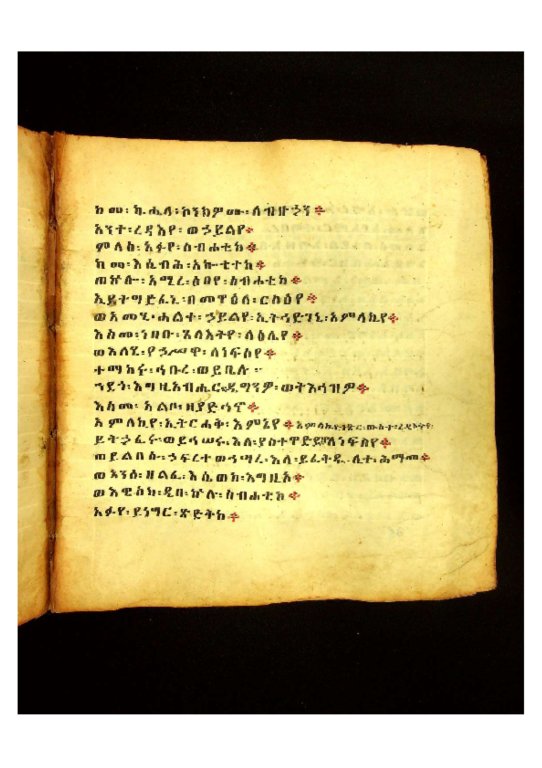 ከመ፡ ኮንክዎሙ፡ለብዙኃን።
አንተ፡ረዳእየ፡ወኃይልየ።
ምላእ፡አፉየ፡ስብሐቲከ።
ከመ፡እሴብሕ፡አኰቴተከ።
ወኵሎ፡አሚረ፡ዕበየ፡ስብሐቲከ።
ኢይትግድፈኒ፡በመዋዕለ፡ርስዕየ።
ወአመኒ፡ሐልቀ፡ኃይልየ፡ኢትኅድገኒ፡አምላኪየ።
እስመ፡ነበቡ፡ጸላእትየ፡ላዕሌየ።
ወእለኒ፡የኃሥዋ፡ለነፍስየ።
ተማከሩ፡ኅቡረ፡ወይቤሉ።
ኀደጎ፡እግዚአብሔር፡ዴግንዎ፡ወትእኅዝዎ።
እስመ፡አልቦ፡ዘያድኅኖ።
አምላኪየ፡ኢትርሐቅ፡እምኔየ። አምላኪየ፡ነጽር፡ውስተ፡ረዲኦትየ፡
ይትኃፈሩ፡ወይኅሠሩ፡እለ፡ያስተዋድይዋ፡ለነፍስየ።
ወይልበሱ፡ኃፍረተ፡ወኅሣረ፡እለ፡ይፈትዱ፡ሊተ፡ሕማመ።
ወአንሰ፡ዘልፈ፡እሴወከ፡እግዚኦ።
ወእዌስክ፡ዲበ፡ኵሉ፡ስብሐቲከ።
አፉየ፡ይነግር፡ጽድቅከ።